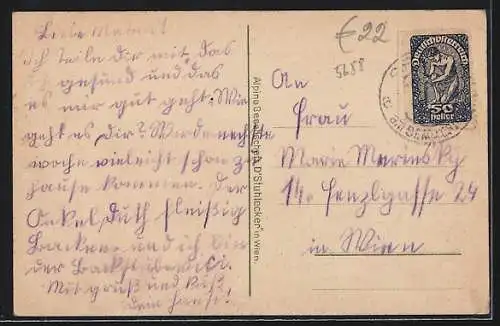 Liebe Mama!
Ich teile dir mit, das
gesund und das
es mir gut geht. Wie
geht es dir? Werde nechste
woche vieleicht schon z
hause kommen. Der
Onkel, duth fleißig
Backen und ich bin
der
Mit gruß und Kuß
dein Hansi!
Alpine Gesellschaft "D'Stuhlecker" in Wien.
€22
5688
Deutschösterreich
50
Heller
An
Frau
Marie Marinsky
14. Fenzlgasse 24
in Wien